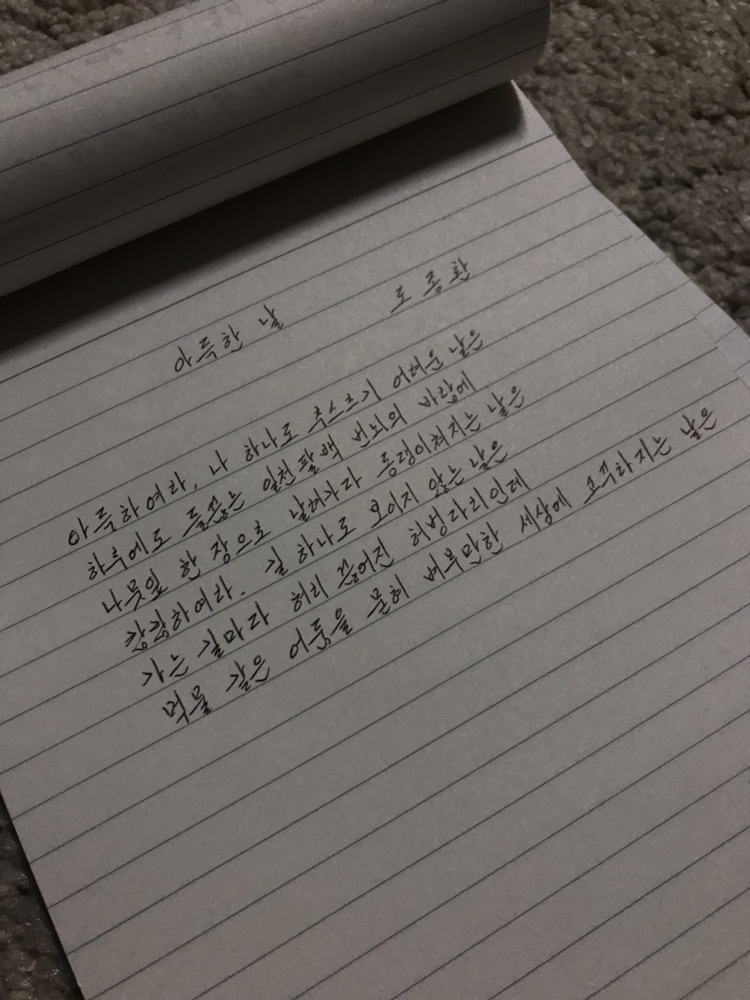 아득한 날 도종환
아득하여라, 나 하나도 추스르기 어려운 날은
하루에도 들끓는 일천팔백 번뇌의 바람에
나뭇잎 한 장으로 날려가다 동댕이쳐지는 날은
캄캄하여라. 길 하나도 보이지 않는 날은
가는 길마다 허리 끊어진 허방다리인데
먹물 같은 어둠을 묻혀 버루만한 세상에 고꾸라지는 날은